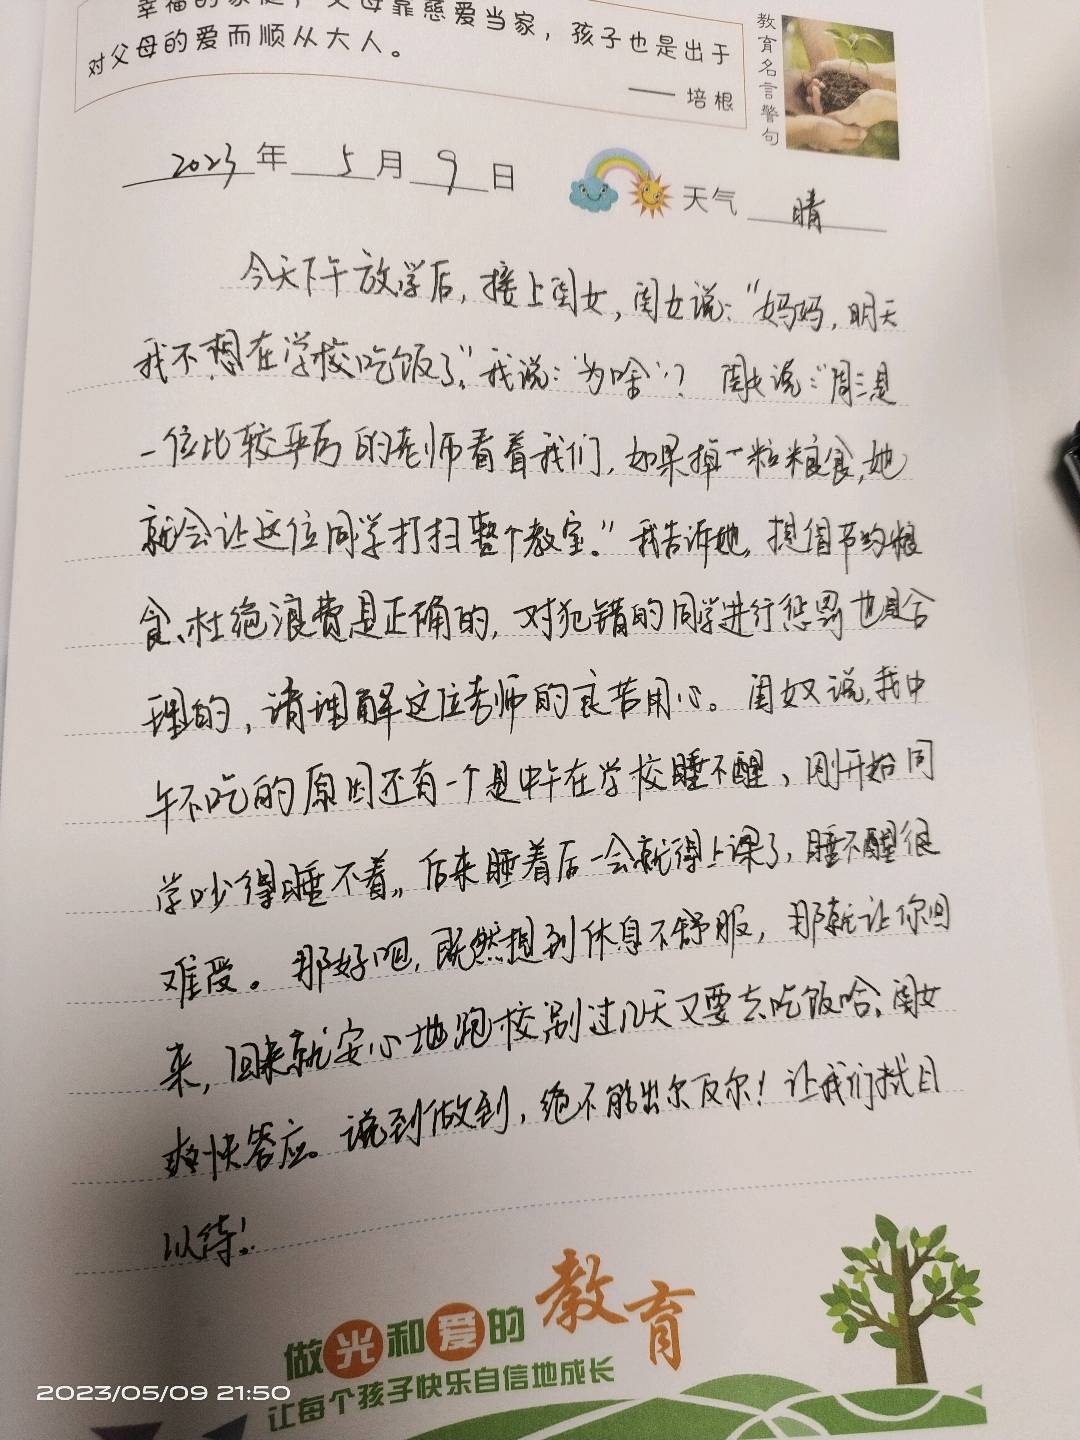 幸福的家庭，父母靠慈爱当家，孩子也是出于
对父母的爱而顺从大人。
——培根
教育名言警句
2023年5月9日 天气 晴
今天下午放学后，接上闺女，闺女说："妈妈，明天
我不想在学校吃饭了"，我说："为啥"？闺女说："周三是
一位比较严厉的老师看着我们，如果掉一粒粮食，她
就会让这位同学打扫整个教室。"我告诉她，提倡节约粮
食、杜绝浪费是正确的，对犯错的同学进行惩罚也是合
理的，请理解这位老师的良苦用心。闺女又说，我中
午不吃的原因还有一个是中午在学校睡不醒，刚开始同
学吵得睡不着，后来睡着后一会就得上课了，睡不醒很
难受。那好吧，既然想到休息不舒服，那就让你回
来，回来就安心地跑校，别过几天又要去吃饭哈；闺女
爽快答应。说到做到，绝不能出尔反尔！让我们拭目
以待！
做光和爱的教育
让每个孩子快乐自信地成长
2023/05/09 21:50